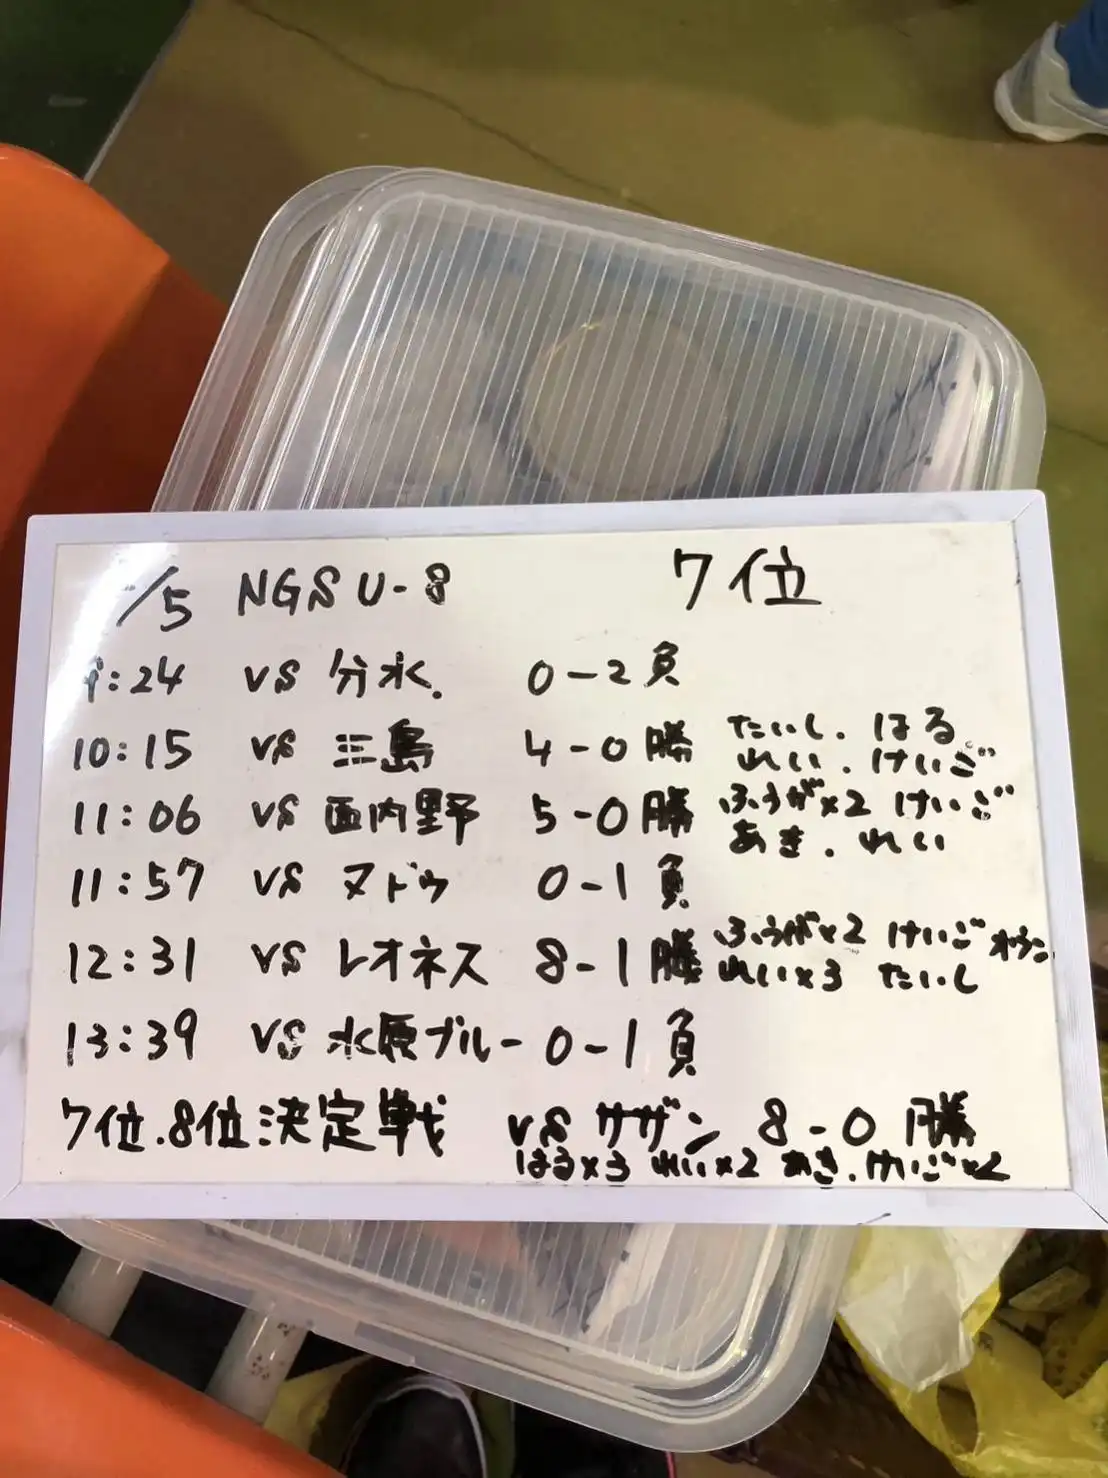 /5 NGS U-8 7位
9:24 vs 分水. 0-2 負
10:15 vs 三島 4-0 勝 たいし.はる
れい.けいご
11:06 vs 西内野 5-0 勝 ふうが×2 けいご
あき.れい
11:57 vs ヌドゥ 0-1 負
12:31 vs レオネス 8-1 勝 ふうが×2 けいご オウン
れい×3 たいし
13:39 vs 水原ブルー 0-1 負
7位.8位決定戦 vs サザン 8-0 勝
はる×3 れい×2 あき.けいご×2